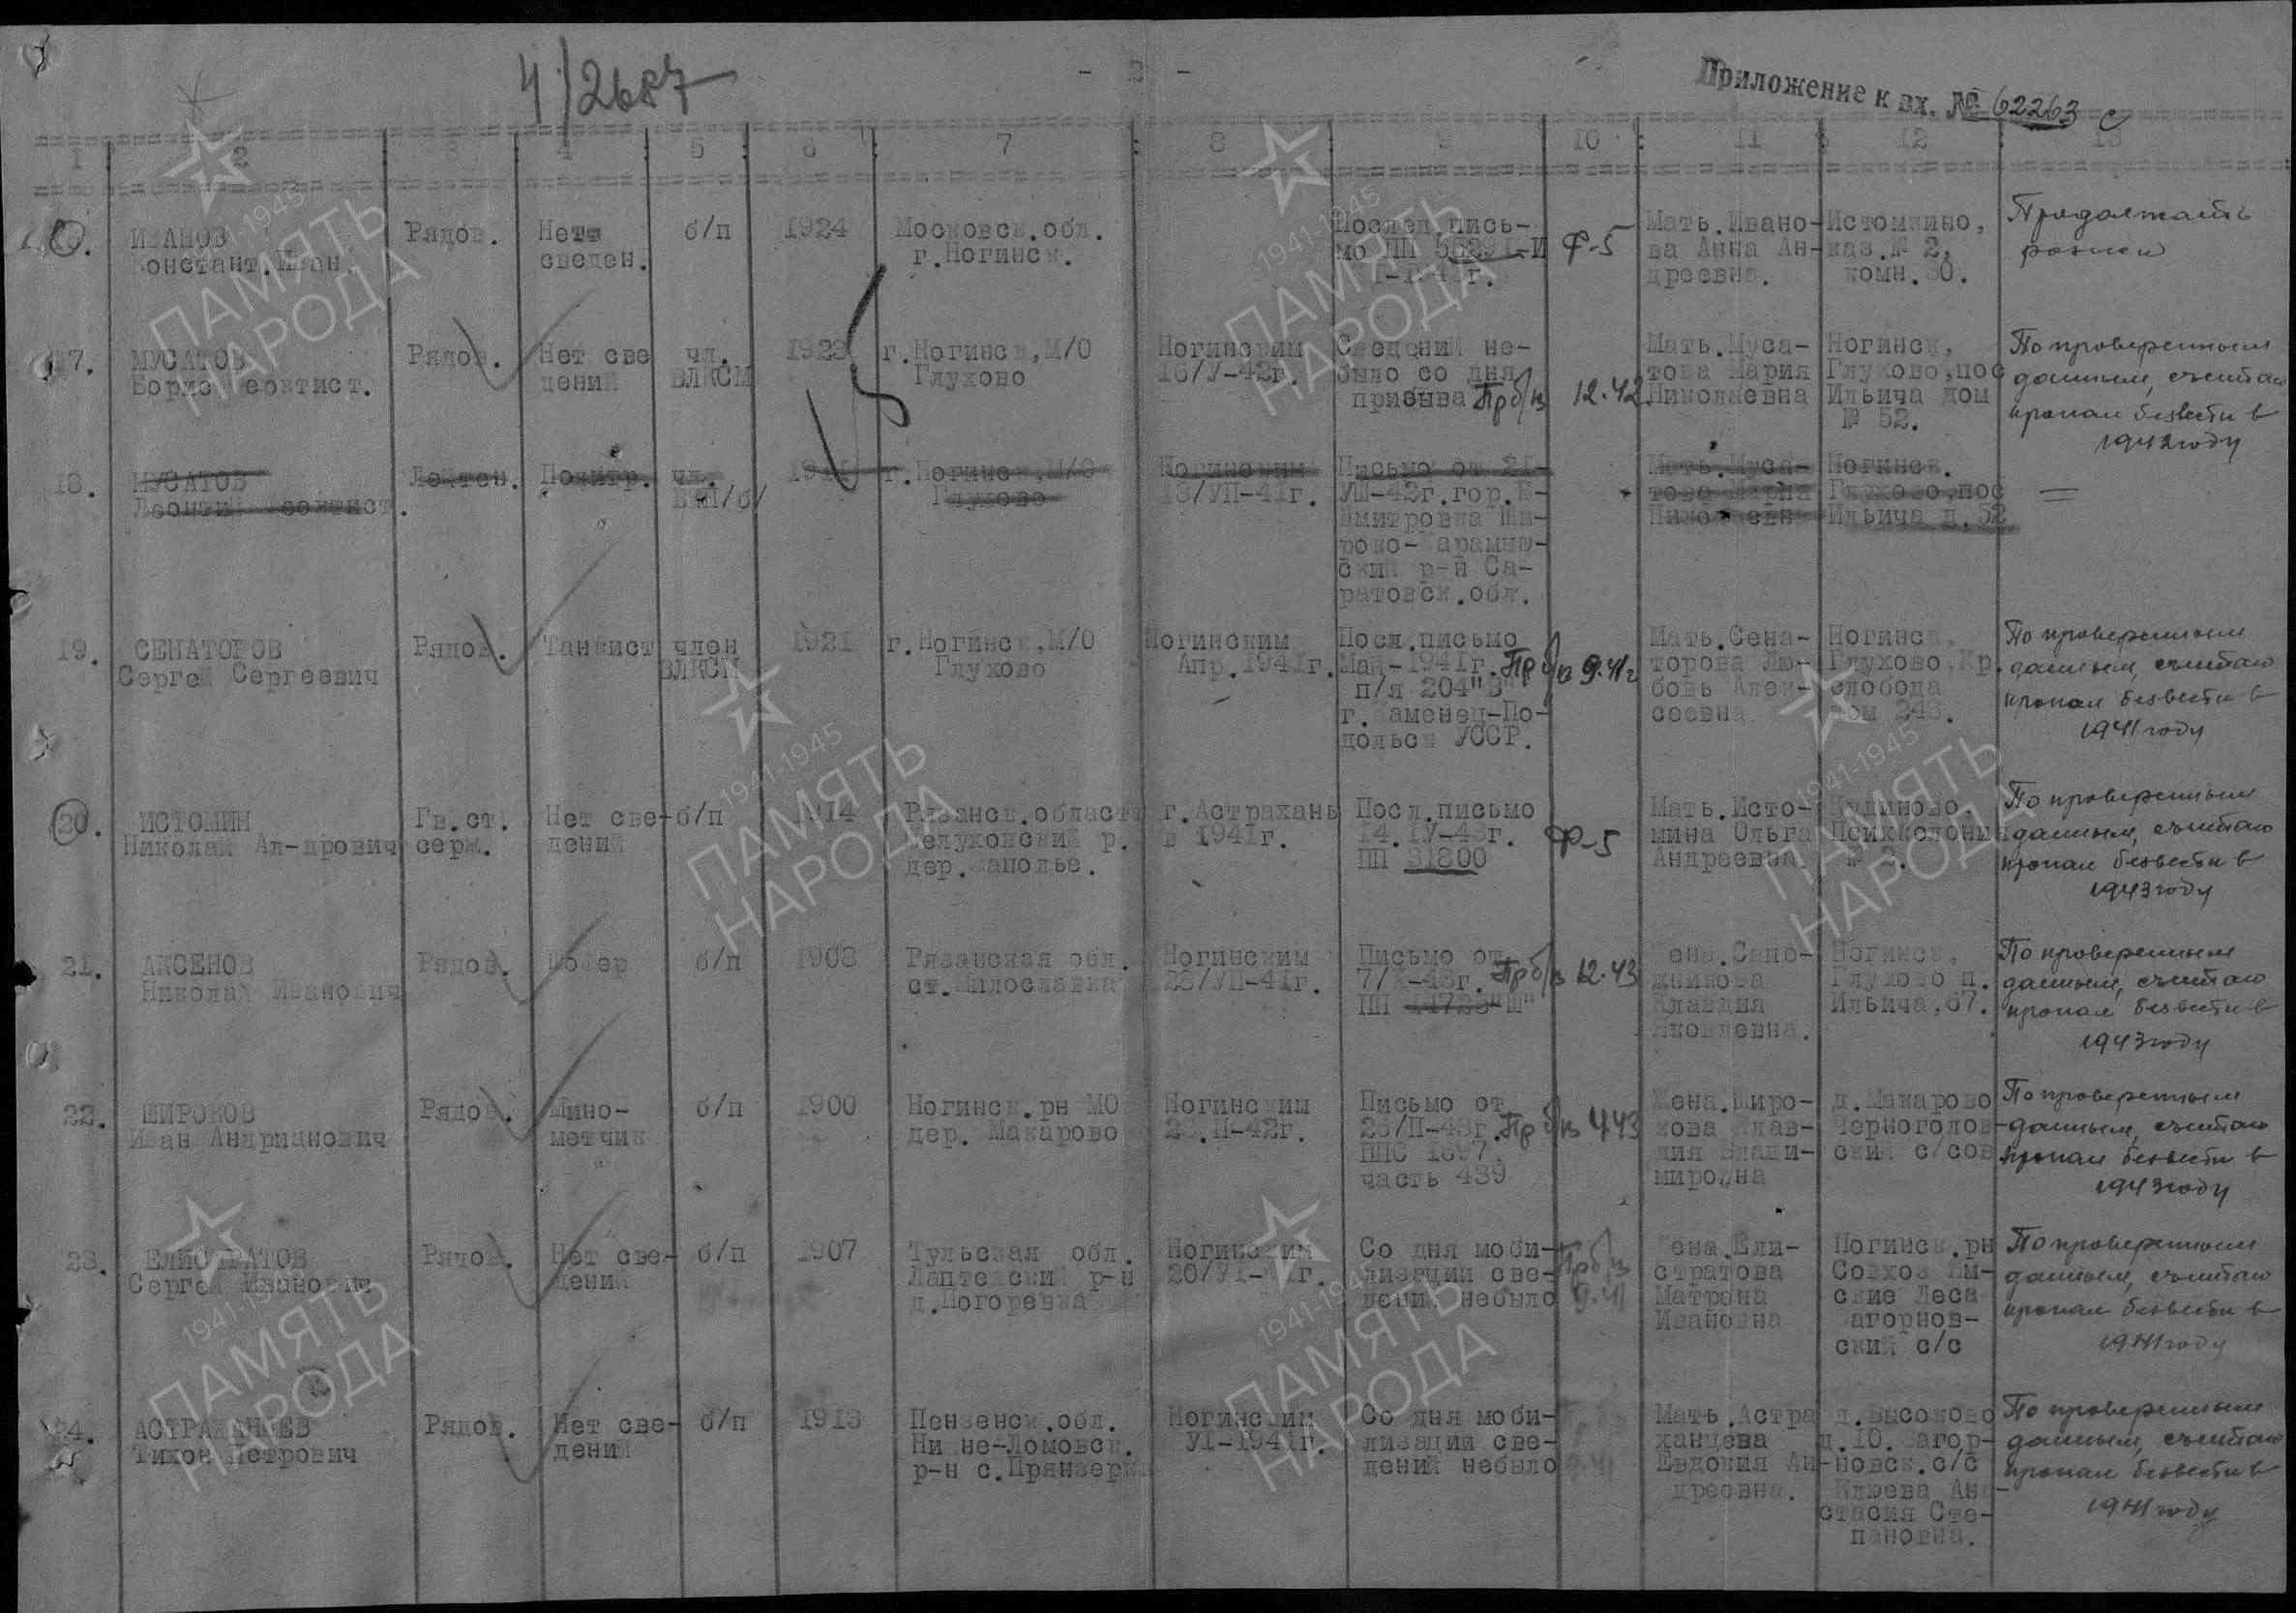 4/2687
Приложение к вх. № 62263
1 2 3 4 5 6 7 8 9 10 11 12 13
ИВАНОВ
Констант.Иван.
Рядов.
Нет
сведен.
б/п
1924
Московск.обл.
г.Ногинск.
Послед.пись-
мо ПП
Ф-5
Мать.Ивано-
ва Анна Ан-
дреевна.
Истомкино,
каз.№ 2,
комн.30.
Продолжать
розыск
17.
МУСАТОВ
Борис Феоктист.
Рядов.
Нет све
дений
чл.
ВЛКСМ
1923
г.Ногинск,М/О
Глухово
Ногинским
16/У-42г.
Сведений не-
было со дня
призыва
Пр б/в
12.42
Мать.Муса-
това Мария
Николаевна
Ногинск,
Глухово,пос
Ильича дом
№ 52.
По проверенным
данным, считаю
пропал безвести в
1942 году
18.
МУСАТОВ
Леонтий Феоктист.
Лейтен.
Политр.
чл.
ВКП/б/
г.Ногинск,М/О
Глухово
Ногинским
18/УП-41г.
Письмо от 21-
УШ-42г.гор.
Дмитровка Ши-
роко-Карамыш-
ский р-н Са-
ратовск.обл.
Мать.Муса-
това Мария
Николаевна
Ногинск.
Глухово,пос
Ильича д.52
=
19.
СЕНАТОРОВ
Сергей Сергеевич
Рядов.
Танкист
член
ВЛКСМ
1921
г.Ногинск,М/О
Глухово
Ногинским
Апр.1941г.
Посл.письмо
Май-1941г.
п/я 204"В"
г.Каменец-По-
дольск УССР.
Пр б/в 9.41г
Мать.Сена-
торова Лю-
бовь Алек-
сеевна
Ногинск,
Глухово,Кр.
слобода
дом 248.
По проверенным
данным, считаю
пропал безвести в
1941 году
20.
ИСТОМИН
Николай Ал-дрович
Гв.ст.
серж.
Нет све-
дений
б/п
1914
Рязанск.область
дер.Заполье.
г.Астрахань
в 1941г.
Посл.письмо
14.1У-43г.
ПП 31800
Ф-5
Мать.Исто-
мина Ольга
Андреевна.
Кудиново.
Психколония
По проверенным
данным, считаю
пропал безвести в
1943 году
21.
АКСЕНОВ
Николай Иванович
Рядов.
Шофер
б/п
1908
Рязанская обл.
ст.Милославка
Ногинским
28/УП-41г.
Письмо от
ПП 14728"Ш"
Пр б/в 12.43
Жена.Сапо-
жникова
Клавдия
Яковлевна.
Ногинск,
Глухово п.
Ильича,67.
По проверенным
данным, считаю
пропал безвести в
1943 году
22.
ШИРОКОВ
Иван Андрианович
Рядов.
Мино-
метчик
б/п
1900
Ногинск.рн МО
дер. Макарово
Ногинским
Письмо от
23/П-43г.
ППС 1897,
часть 439
Пр б/в 4.43
Жена.Широ-
кова Клав-
дия Влади-
мировна
д.Макарово
Черноголов-
ский с/сов
По проверенным
данным, считаю
пропал безвести в
1943 году
23.
ЕЛИСТРАТОВ
Сергей Иванович
Рядов.
Нет све-
дений
б/п
1907
Тульская обл.
Лаптевский р-н
д.Погоревка
Ногинским
Со дня моби-
лизации све-
дений небыло
Пр б/в
9.41
Жена.Ели-
стратова
Матрона
Ивановна
Ногинск.рн
Совхоз
ские Леса
Загорнов-
ский с/с
По проверенным
данным, считаю
пропал безвести в
1941 году
24.
АСТРАХАНЦЕВ
Тихон Петрович
Рядов.
Нет све-
дений
б/п
1913
Пензенск.обл.
Нижне-Ломовск.
р-н с.Прянзерки
Ногинским
У1-1941г.
Со дня моби-
лизации све-
дений небыло
Мать.Астра
ханцева
Евдокия Ан-
дреевна.
д.Высоково
д.10.Загор-
новск.с/с
Клюева Ана-
стасия Сте-
пановна.
По проверенным
данным, считаю
пропал безвести в
1941 году
1941-1945
ПАМЯТЬ
НАРОДА
1941-1945
ПАМЯТЬ
НАРОДА
1941-1945
ПАМЯТЬ
НАРОДА
1941-1945
ПАМЯТЬ
НАРОДА
1941-1945
ПАМЯТЬ
НАРОДА
1941-1945
ПАМЯТЬ
НАРОДА